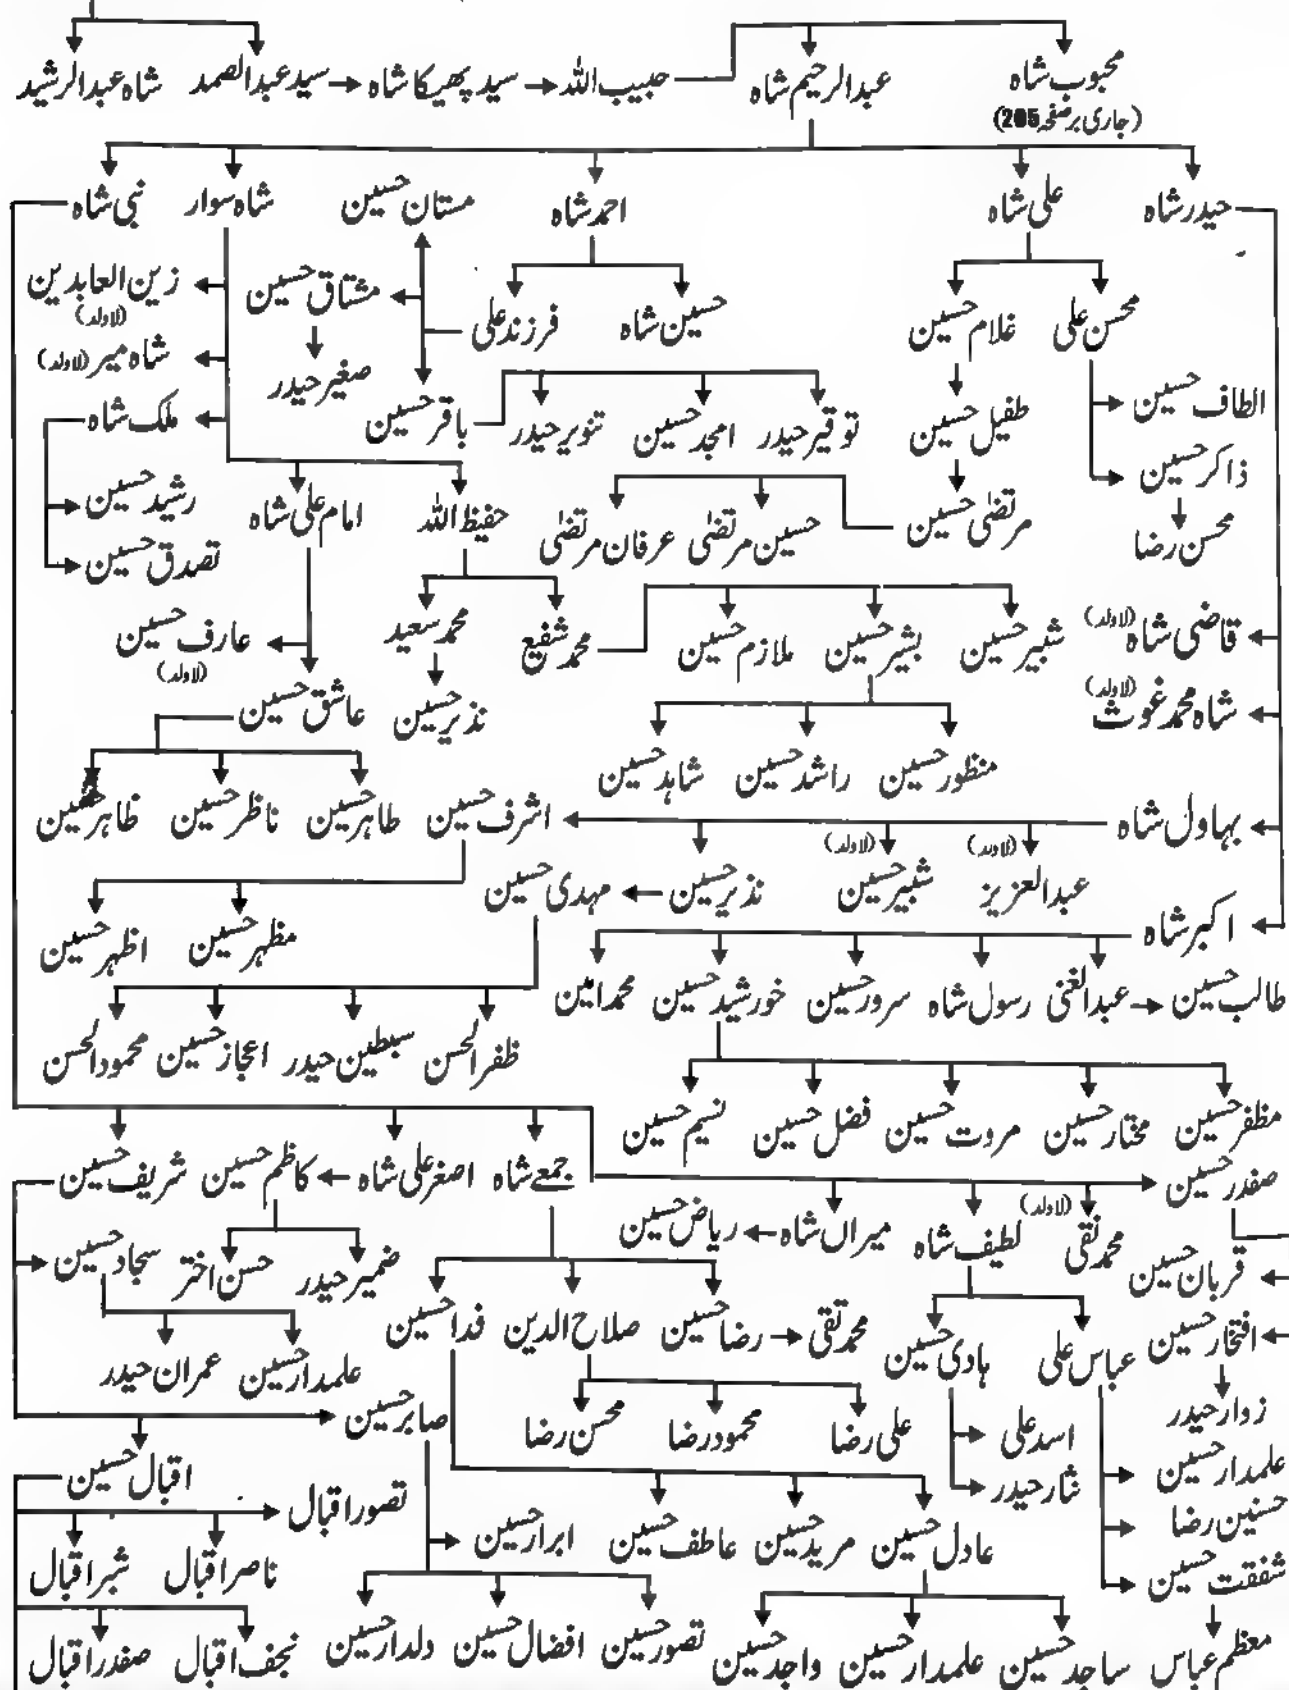 محبوب شاہ عبدالرحیم شاہ حبیب اللہ سید پھیکا شاہ سید عبدالصمد شاہ عبدالرشید
(جاری بر صفحہ 205)
حیدر شاہ علی شاہ احمد شاہ مستان حسین شاہ سوار نبی شاہ
محسن علی غلام حسین حسین شاہ فرزند علی مشتاق حسین زین العابدین
(لاولد)
صغیر حیدر شاہ میر (لاولد)
الطاف حسین طفیل حسین توقیر حیدر امجد حسین تنویر حیدر باقر حسین ملک شاہ
ذاکر حسین رشید حسین
محسن رضا مرتضٰی حسین حسین مرتضٰی عرفان مرتضٰی حفیظ اللہ امام علی شاہ تصدق حسین
قاضی شاہ (لاولد) شبیر حسین بشیر حسین ملازم حسین محمد شفیع محمد سعید عارف حسین
(لاولد)
شاہ محمد غوث (لاولد) نذیر حسین عاشق حسین
منظور حسین راشد حسین شاہد حسین
بہاول شاہ اشرف حسین طاہر حسین ناظر حسین ظاہر حسین
(لاولد) (لاولد)
عبدالعزیز شبیر حسین نذیر حسین مہدی حسین
اکبر شاہ مظہر حسین اظہر حسین
طالب حسین عبدالغنی رسول شاہ سرور حسین خورشید حسین محمد امین
ظفر الحسن سبطین حیدر اعجاز حسین محمود الحسن
مظفر حسین مختار حسین مروت حسین فضل حسین نسیم حسین
صفدر حسین جمعے شاہ اصغر علی شاہ کاظم حسین شریف حسین
(لاولد)
محمد نقی لطیف شاہ میراں شاہ ریاض حسین
قربان حسین ضمیر حیدر حسن اختر سجاد حسین
افتخار حسین عباس علی ہادی حسین محمد تقی رضا حسین صلاح الدین فدا حسین
علمدار حسین عمران حیدر
زوار حیدر اسد علی علی رضا محمود رضا محسن رضا صابر حسین
علمدار حسین نثار حیدر اقبال حسین
حسنین رضا تصور اقبال
شفقت حسین عادل حسین مرید حسین عاطف حسین ابرار حسین ناصر اقبال شبر اقبال
معظم عباس ساجد حسین علمدار حسین واجد حسین تصور حسین افضال حسین دلدار حسین نجف اقبال صفدر اقبال